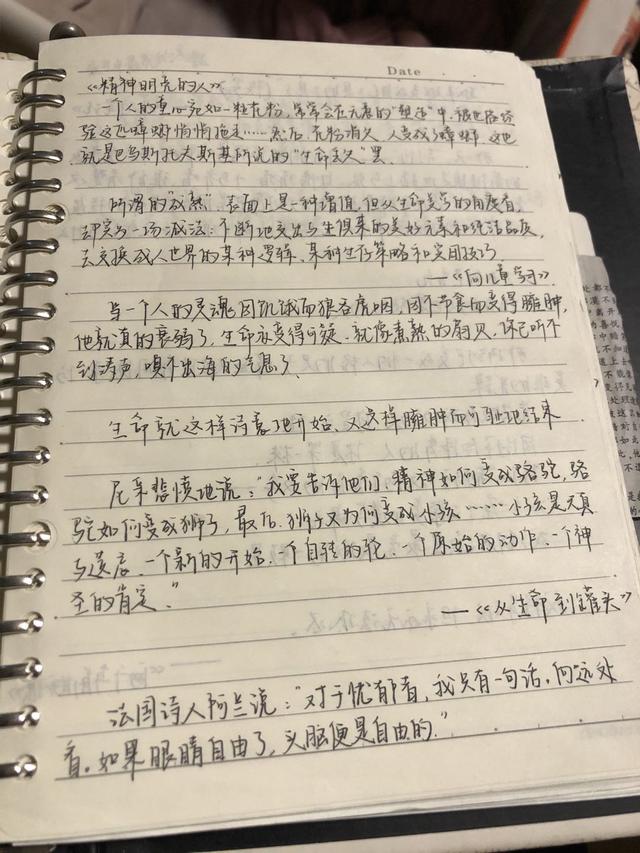 Date
《精神明亮的人》
一个人的童心宛如一粒花粉，常常会在无意的"塑造"中，被世故经
验这匹蟑螂悄悄拖走……然后，花粉消失，人变成了蟑螂。这也
就是巴乌斯托夫斯基所说的"生命丢失"罢
所谓的"成熟"，表面上是一种增值，但从生命美学的角度看，
却实为一场减法：不断地交出与生俱来的美好元素和纯洁品质，
去交换成人世界的某种逻辑、某种生存策略和实用技巧
——《向儿童学习》
当一个人的灵魂因饥饿而狼吞虎咽，因不节食而变得臃肿，
他就真的衰弱了，生命亦变得可疑，就像煮熟的扇贝，你已听不
到涛声，嗅不出海的气息了
生命就这样诗意地开始，又这样臃肿而可耻地结束
尼采悲愤地说："我要告诉他们，精神如何变成骆驼，骆
驼如何变成狮子，最后，狮子又为何变成小孩……小孩是天真
与遗忘，一个新的开始，一个自转的轮，一个原始的动作，一个神
圣的肯定。"
——《从生命到罐头》
法国诗人阿兰说："对于忧郁者，我只有一句话，向远处
看。如果眼睛自由了，头脑便是自由的."